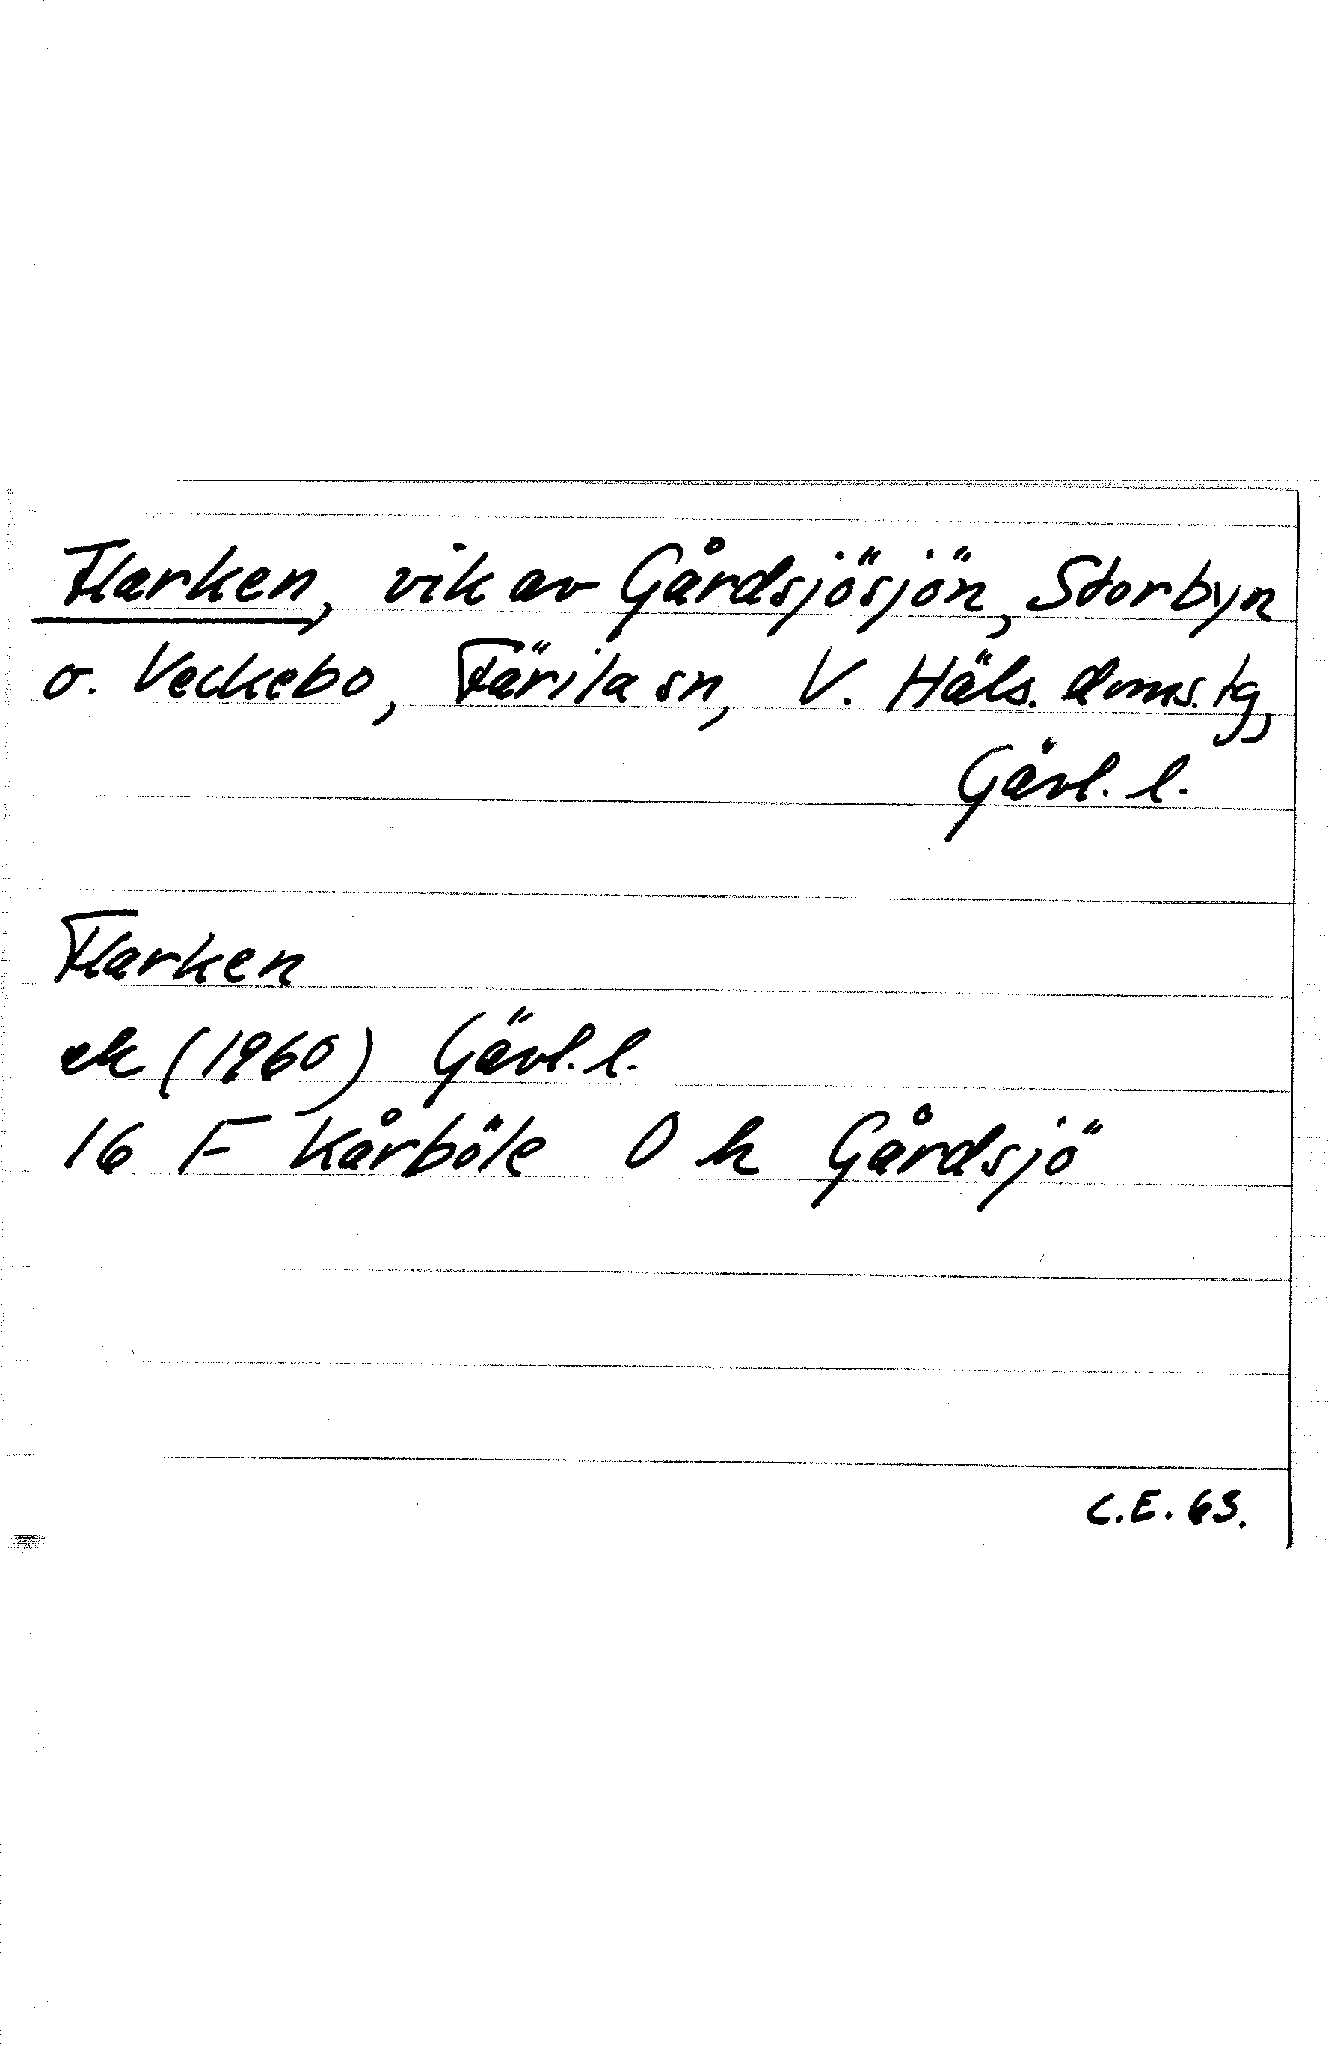 Flarken, vik av Gårdsjösjön, Storbyn
o. Veckebo, Färila sn, V. Häls. doms. lg,
Gävl. l.
Flarken
ek (1960) Gävl. l.
16 F Kårböle O h Gårdsjö
C.E. 63.